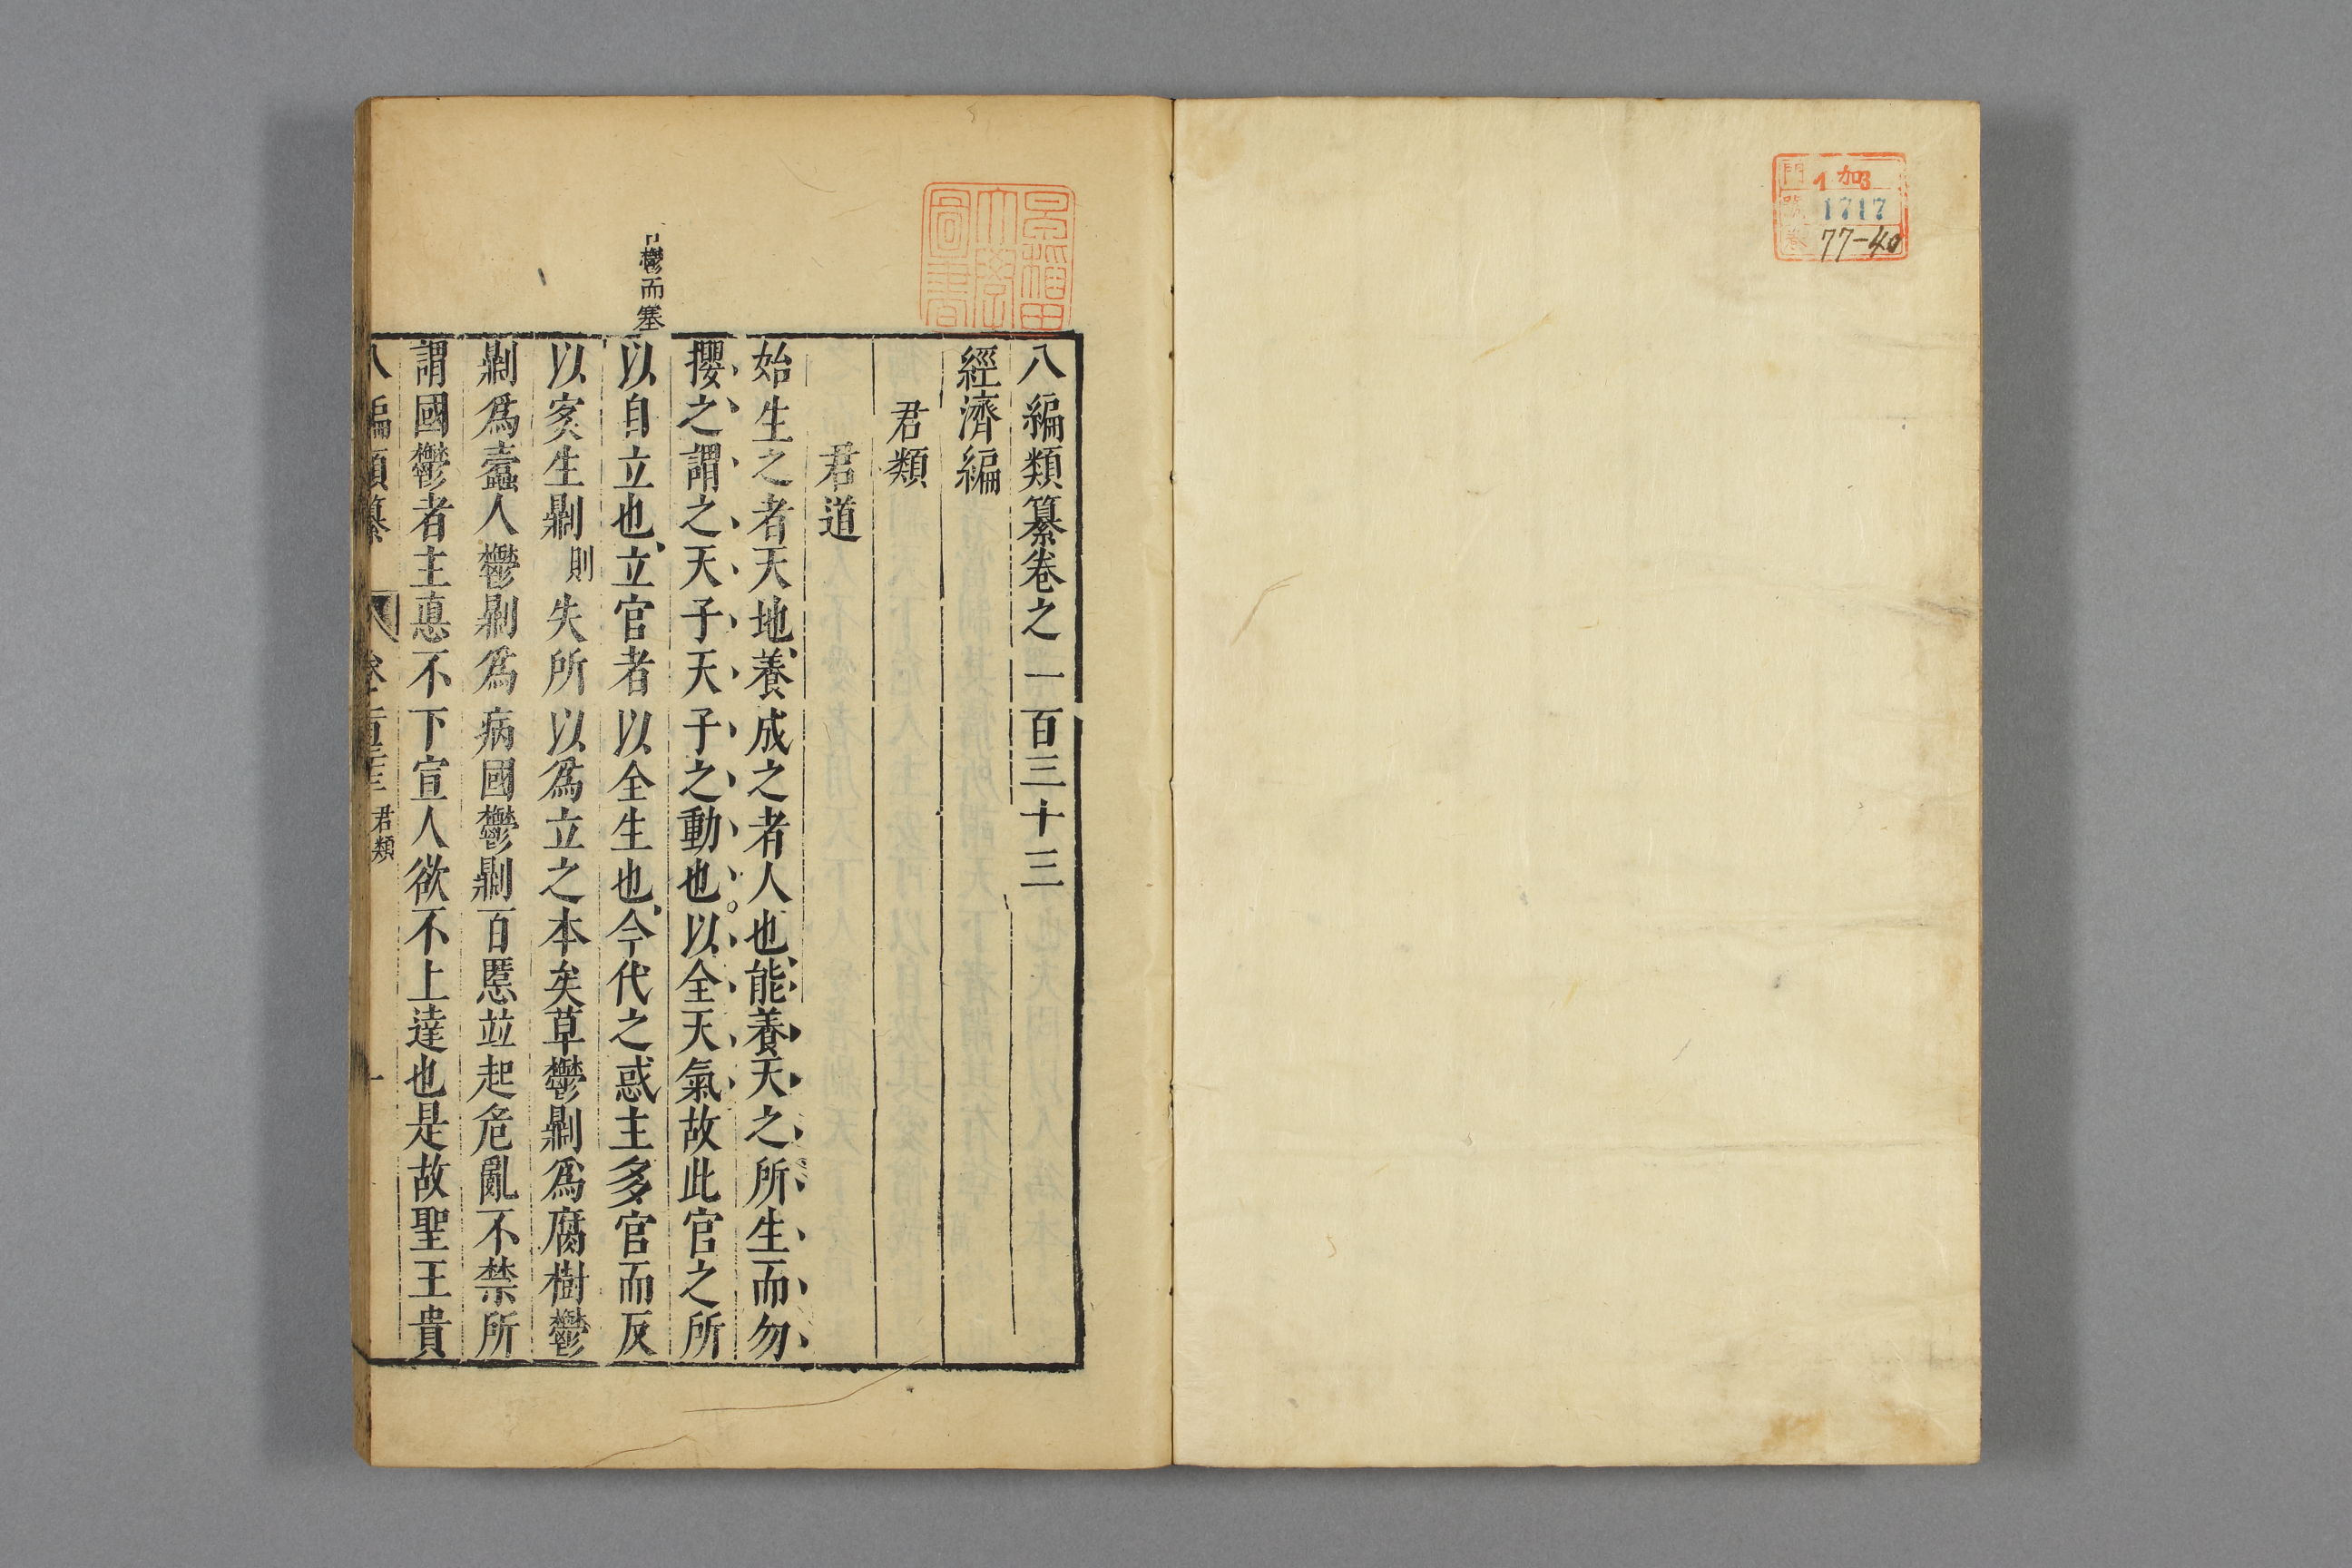 門 1 加3
號 1717
卷 77-40
早稻田
大學
圖書
八編類纂卷之一百三十三
經濟編
君類
君道
始生之者天地養成之者人也能養天之所生而勿
攖之謂之天子天子之動也以全天氣故此官之所
以自立也立官者以全生也今代之惑主多官而反
以害生剿則失所以爲立之本矣草鬱剿爲腐樹鬱
剿爲蠹人鬱剿爲病國鬱剿百慝並起危亂不禁所
謂國鬱者主悳不下宣人欲不上達也是故聖王貴
鬱而塞
八編類纂 卷一百三十三 君類 一